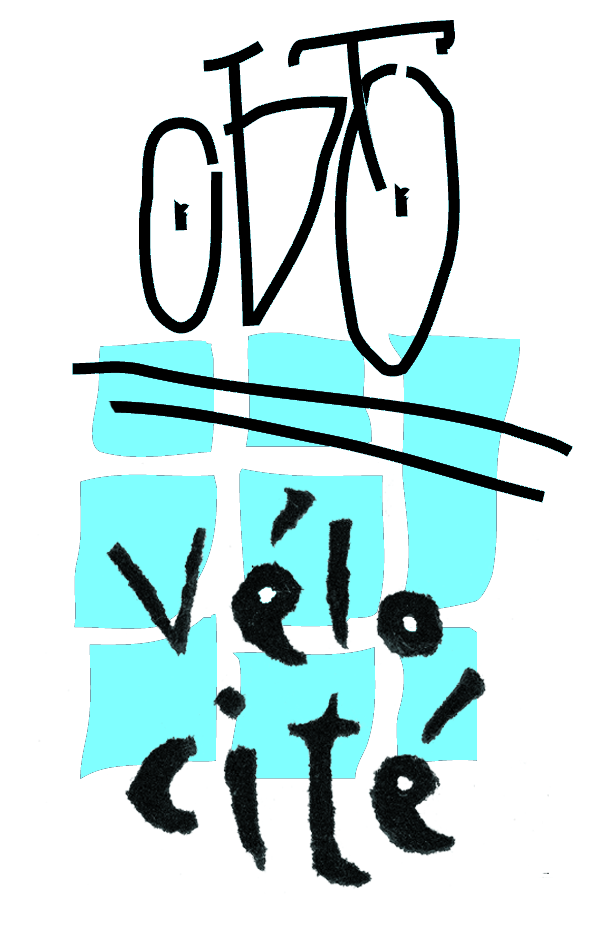 vélo
cité